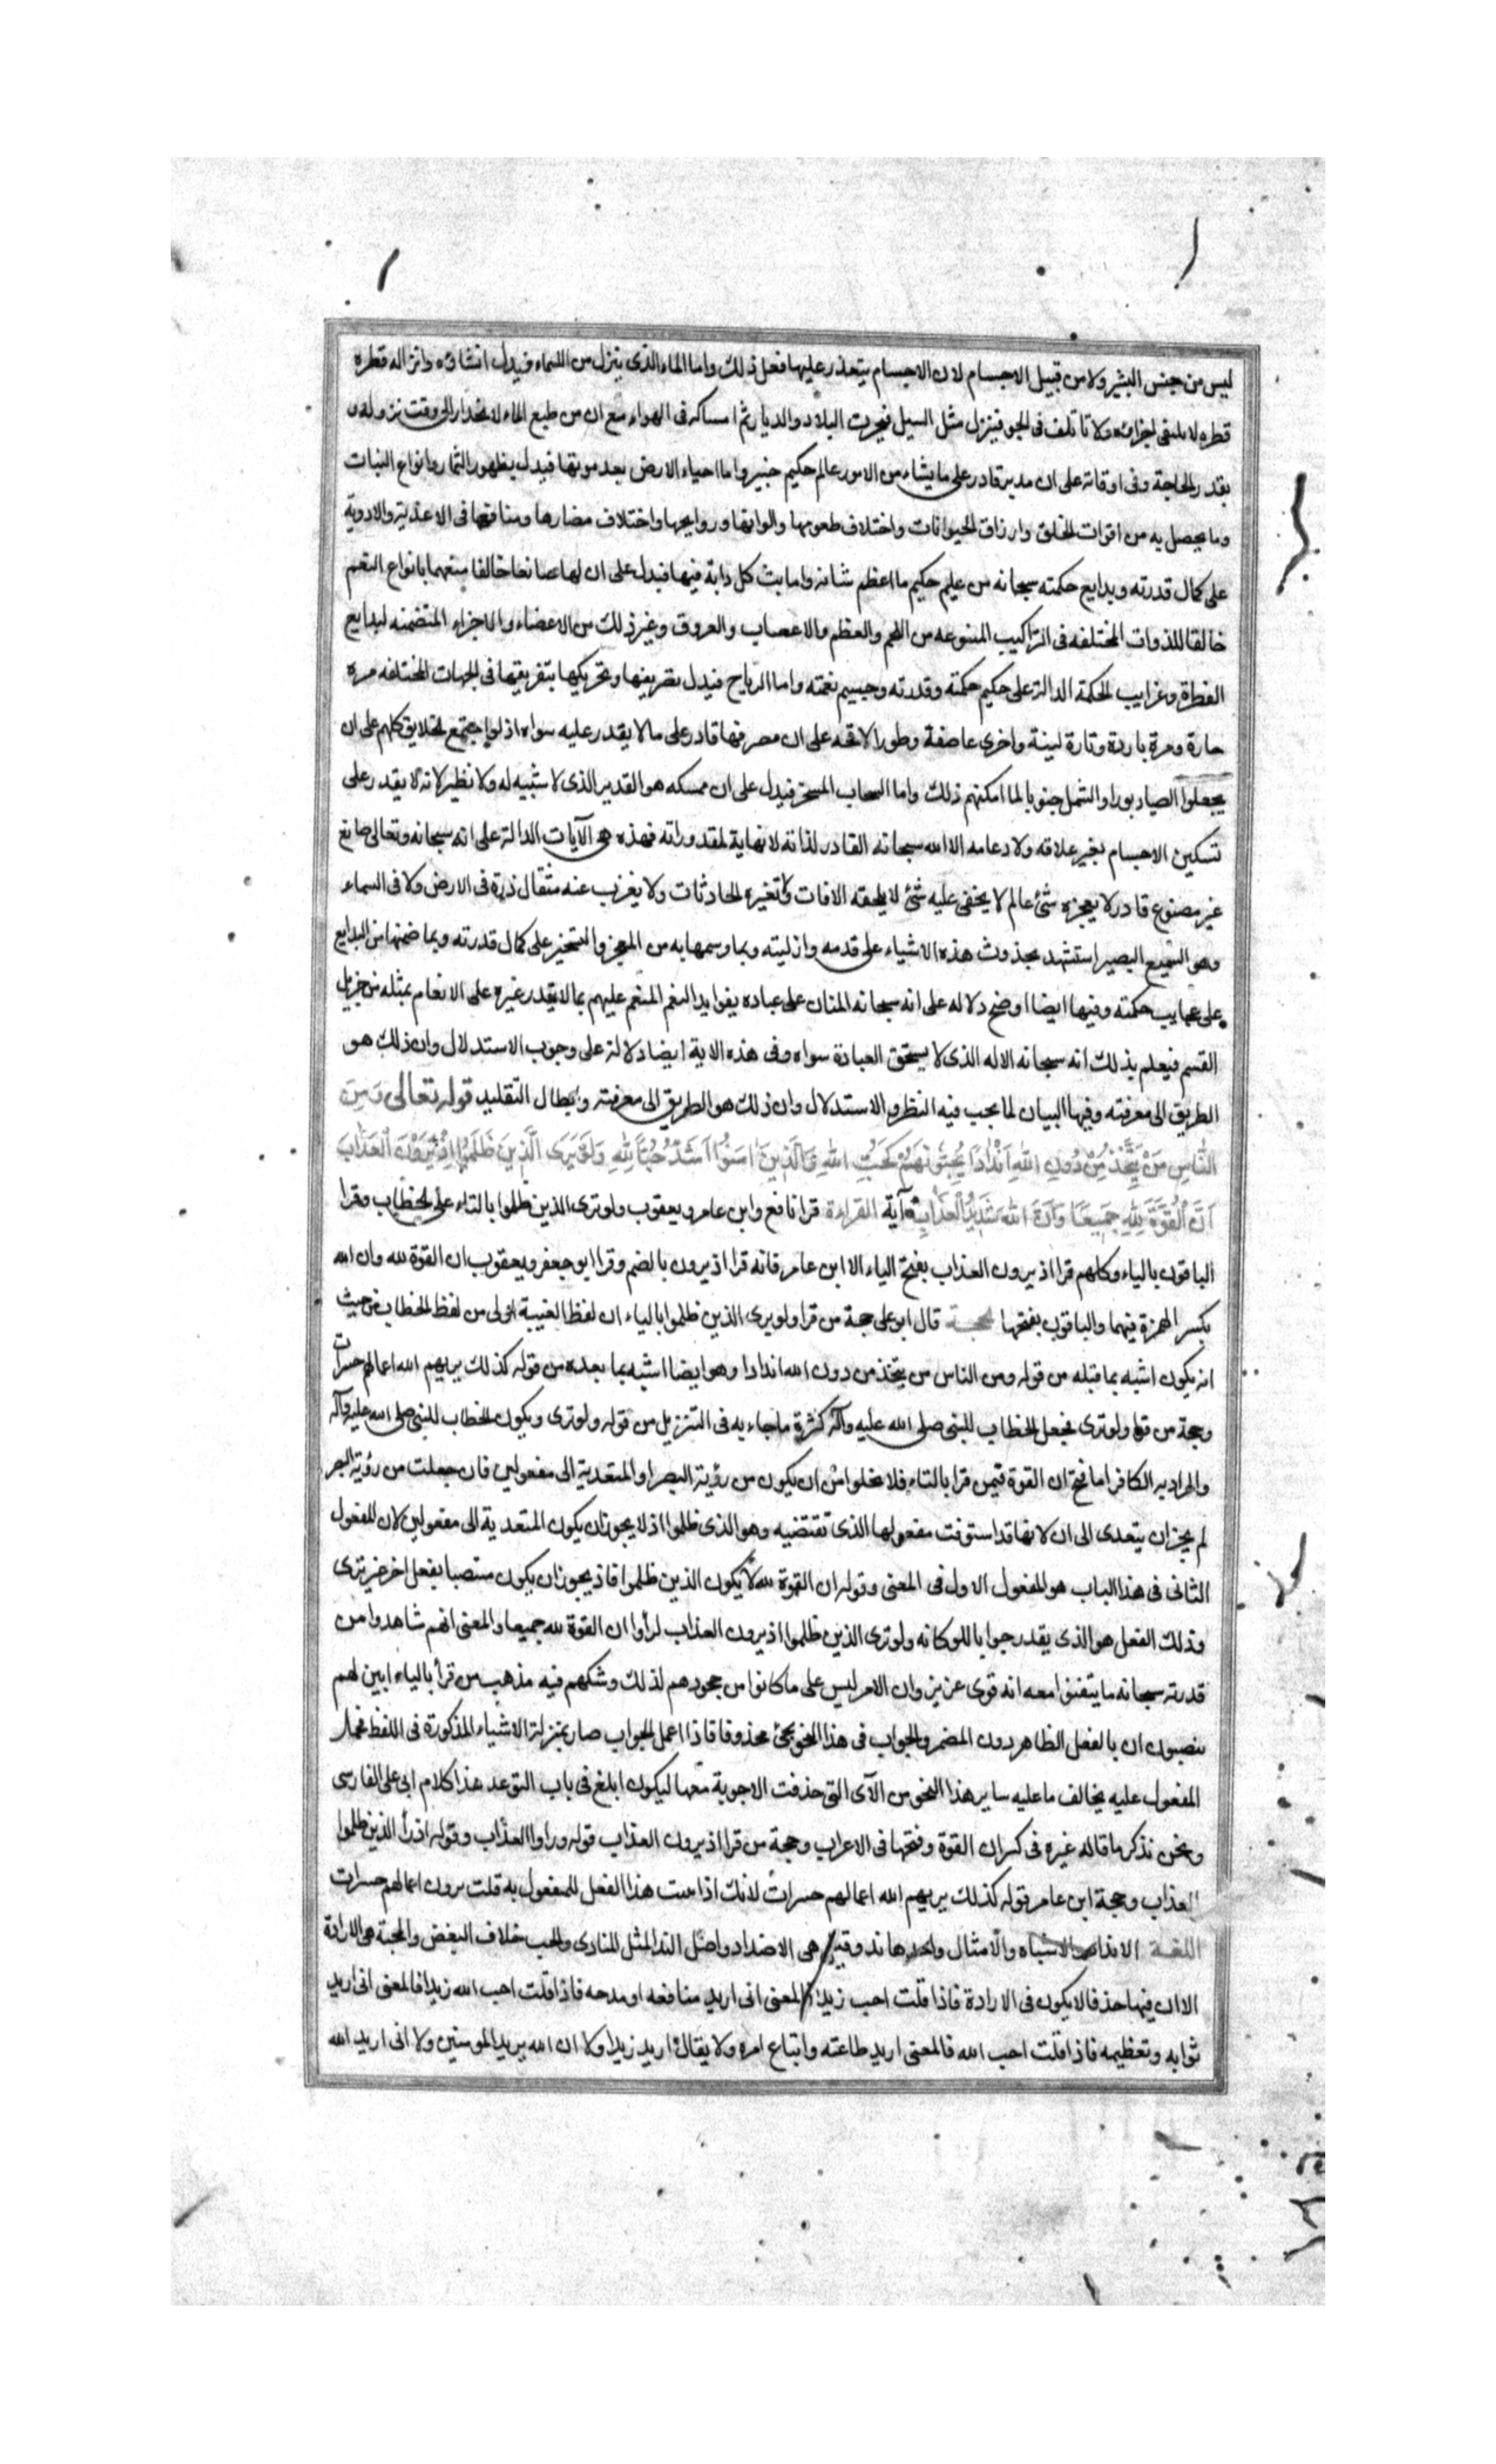 ليس من جنس البشر ولا من قبيل الاجسام لان الاجسام يتعذر عليها فعل ذلك واما الماء الذى ينزل من السماء فيدل انشاؤه وانزاله قطره
قطره لا يلتقى اجزاؤه ولا تاتلف فى الجو فينزل مثل السيل فيخرب البلاد والديار ثم امساكه فى الهواء مع ان من طبع الماء الانحدار الى وقت نزوله
بقدر الحاجة وفى اوقاته على ان مدبره قادر على ما يشاء من الامور عالم حكيم خبير واما احياء الارض بعد موتها فيدل بظهور الثمار وانواع النبات
وما يحصل به من اقوات الخلق وارزاق الحيوانات واختلاف طعومها والوانها وروايحها واختلاف مضارها ومنافعها فى الاغذية والادوية
على كمال قدرته وبدايع حكمته سبحانه من عليم حكيم ما اعظم شانه واما بث كل دابة فيها فيدل على ان لها صانعا خالفا منعما بانواع النعم
خالقا للذوات المختلفه فى التراكيب المتنوعه من اللحم والعظم والاعصاب والعروق وغير ذلك من الاعضاء والاجزاء المتضمنه لبدايع
الفطرة وغرايب الحكمة الدالة على حكيم حكمته وقدرته وجسيم نعمته واما الرياح فيدل بتصريفها وتحريكها بتفريقها فى الجهات المختلفه مره
حارة ومرة باردة وتارة لينة واخرى عاصفة وطورا لاقحه على ان مصرفها قادر على ما لا يقدر عليه سواه اذ لو اجتمع الخلايق كلهم على ان
يجعلوا الصبا دبورا والشمل جنوبا لما امكنهم ذلك واما السحاب المسخر فيدل على ان ممسكه هو القدير الذى لا شبيه له ولا نظير لانه لا يقدر على
تسكين الاجسام بغير علاقه ولا دعامه الا الله سبحانه القادر لذاته لا نهاية لمقدوراته فهذه هى الآيات الدالة على انه سبحانه وتعالى صانع
غير مصنوع قادر لا يعجزه شئ عالم لا يخفى عليه شئ لا يلحقه الافات ولا تغيره الحادثات ولا يغرب عنه مثقال ذرة فى الارض ولا فى السماء
وهو السميع البصير استشهد بحدوث هذه الاشياء على قدمه وازليته وبما وسمها به من العجز والتسخير على كمال قدرته وبما ضمنها من البدايع
على عجايب حكمته وفيها ايضا اوضح دلاله على انه سبحانه المنان على عباده بفوايد النعم المنعم عليهم بما لا يقدر غيره على الانعام بمثله من جزيل
القسم فيعلم بذلك انه سبحانه الاله الذى لا يستحق العبادة سواه وفى هذه الاية ايضا دلالة على وجوب الاستدلال وان ذلك هو
الطريق الى معرفته وفيها البيان لما يجب فيه النظر والاستدلال وان ذلك هو الطريق الى معرفته وابطال التقليد قوله تعالى وَمِنَ
النَّاسِ مَنْ يَتَّخِذُ مِنْ دُونِ اللهِ اَنْدَادًا يُحِبُّونَهُمْ كَحُبِّ اللهِ وَالَّذِينَ اٰمَنُوا اَشَدُّ حُبًّا لِلّٰهِ وَلَوْ يَرَى الَّذِينَ ظَلَمُوا اِذْ يَرَوْنَ الْعَذَابَ
اَنَّ الْقُوَّةَ لِلّٰهِ جَمِيعًا وَاَنَّ اللهَ شَدِيدُ الْعَذَابِ آية القراءة قرا نافع وابن عامر ويعقوب ولو ترى الذين ظلموا بالتاء على الخطاب وقرا
الباقون بالياء وكلهم قرا اذ يرون العذاب بفتح الياء الا ابن عامر فانه قرا اذ يرون بالضم وقرا ابو جعفر ويعقوب ان القوة لله وان الله
بكسر الهمزة فيهما والباقون بفتحها الحجة قال ابو على حجة من قرا ولو يرى الذين ظلموا بالياء ان لفظ الغيبة اولى من لفظ الخطاب من حيث
انه يكون اشبه بما قبله من قوله ومن الناس من يتخذ من دون الله اندادا وهو ايضا اشبه بما بعده من قوله كذلك يريهم الله اعمالهم حسرات
وحجة من قرا ولو ترى فجعل الخطاب للنبى صلى الله عليه وآله كثرة ما جاء به فى التنزيل من قوله ولو ترى ويكون الخطاب للنبى صلى الله عليه وآله
والمراد به الكافر اما فتح ان القوة فيمن قرا بالتاء فلا يخلوا من ان يكون من رؤية البصر او المتعدية الى مفعولين فان جعلت من رؤية البصر
لم يجز ان يتعدى الى ان لانها قد استوفت مفعولها الذى تقتضيه وهو الذى ظلموا اذ لا يجوز ان يكون المتعدية الى مفعولين لان المفعول
الثانى فى هذا الباب هو المفعول الاول فى المعنى وقوله ان القوة لله لا يكون الذين ظلموا فاذ يجوز ان يكون منتصبا بفعل اخر غير ترى
وذلك الفعل هو الذى يقدر جوابا للو كانه ولو ترى الذين ظلموا اذ يرون العذاب لرأوا ان القوة لله جميعا والمعنى انهم شاهدوا من
قدرته سبحانه ما يتقنوا معه انه قوى عزيز وان الامر ليس على ما كانوا من جحودهم لذلك وشكهم فيه مذهب من قرأ بالياء ابين لهم
ينصبون ان بالفعل الظاهر دون المضمر والجواب فى هذا النحو يجئ محذوفا فاذا اعمل الجواب صار بمنزلة الاشياء المذكورة فى اللفظ فحمل
المفعول عليه يخالف ما عليه ساير هذا النحو من الآى التى حذفت الاجوبة معها ليكون ابلغ فى باب التوعد هذا كلام ابى على الفارسى
ونحن نذكر ما قاله غيره فى كسر ان القوة وفتحها فى الاعراب وحجة من قرا اذ يرون العذاب قوله وراوا العذاب وقوله اذ رأ الذين ظلموا
العذاب وحجة ابن عامر قوله كذلك يريهم الله اعمالهم حسرات لانك اذا بنيت هذا الفعل للمفعول به قلت يرون اعمالهم حسرات
اللغة الانداد والاشباه والامثال واحدها ند وقيل هى الاضداد واصل الند المثل المناوى والحب خلاف البغض والمحبة هى الارادة
الا ان فيها حذفا لا يكون فى الارادة فاذا قلت احب زيدا فالمعنى انى اريد منافعه او مدحه فاذا قلت احب الله زيدا فالمعنى انى اريد
ثوابه وتعظيمه فاذا قلت احب الله فالمعنى اريد طاعته واتباع امره ولا يقال اريد زيدا ولا ان الله يريد المومنين ولا انى اريد الله